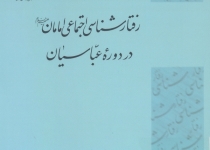 رفتارشناسی اجتماعی امامان
در دورهٔ عباسیان